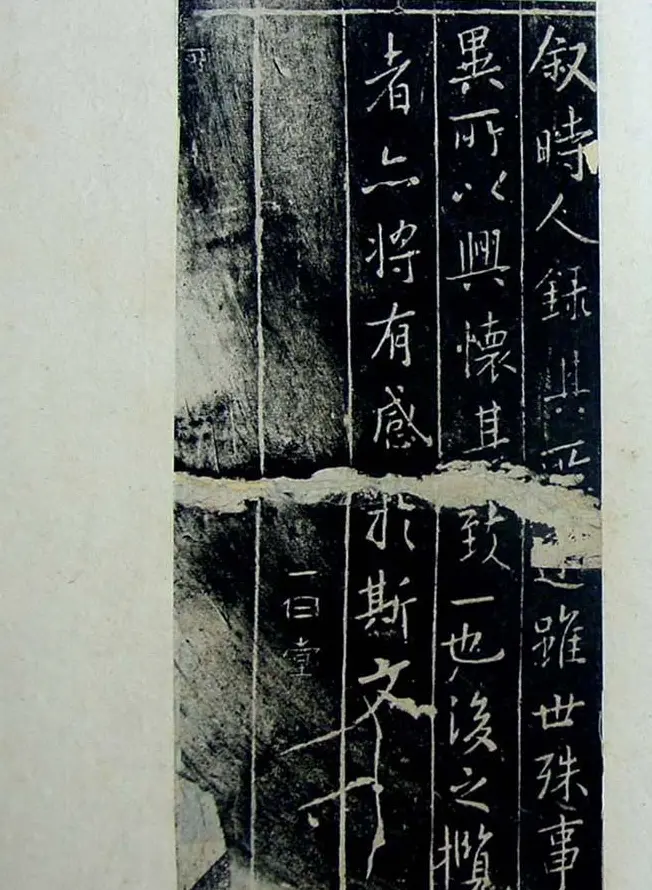 叙時人録其所述雖世殊事
異所以興懷其致一也後之攬
者亦將有感於斯文
一白堂